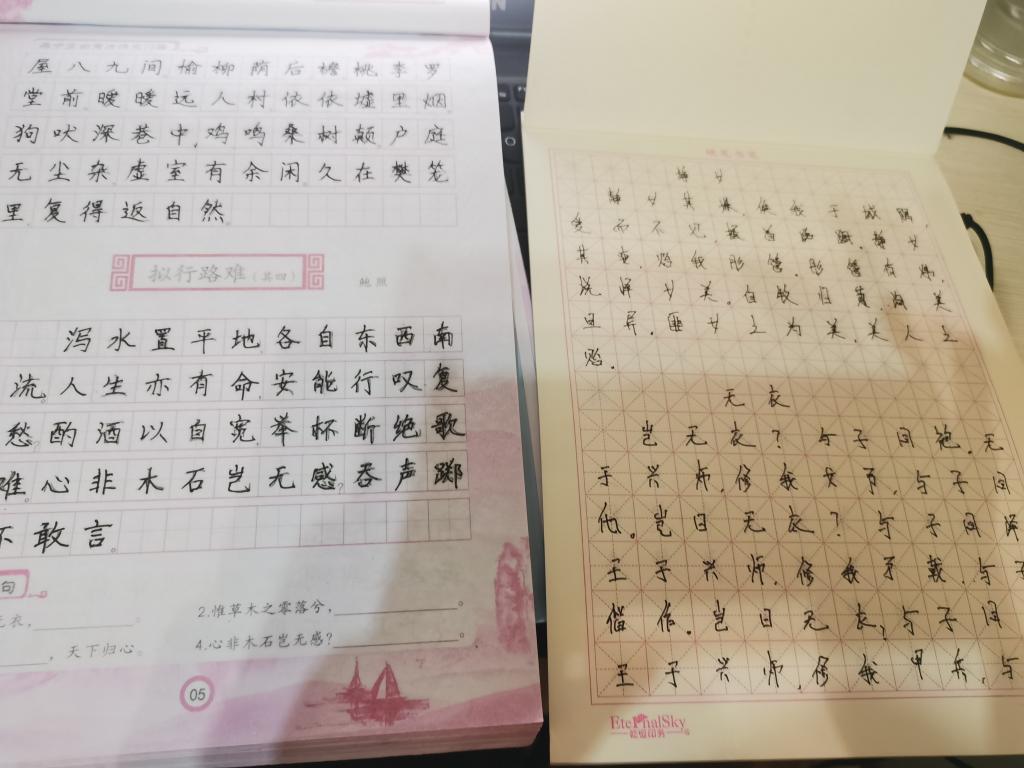 屋八九间榆柳荫后檐桃李罗
堂前暧暧远人村依依墟里烟。
狗吠深巷中,鸡鸣桑树颠。户庭
无尘杂。虚室有余闲。久在樊笼
里复得返自然
拟行路难(其四)
鲍照
泻水置平地,各自东西南
流。人生亦有命,安能行叹复
愁?酌酒以自宽,举杯断绝歌
难。心非木石岂无感?吞声踯
不敢言。
句
无衣,
2.惟草木之零落兮,
。
,天下归心。
4.心非木石岂无感?
。
05
静女
静女其姝,俟我于城隅,
爱而不见,搔首踟蹰,静女
其娈,贻我彤管,彤管有炜,
说怿女美。自牧归荑,洵美
且异,匪女之为美,美人之
贻。
无衣
岂无衣?与子同袍。无
于兴师,修我戈矛,与子同
仇。岂曰无衣?与子同泽
王于兴师,修我矛戟,与子
偕作。岂曰无衣?与子同
王于兴师,修我甲兵,与
EternalSky